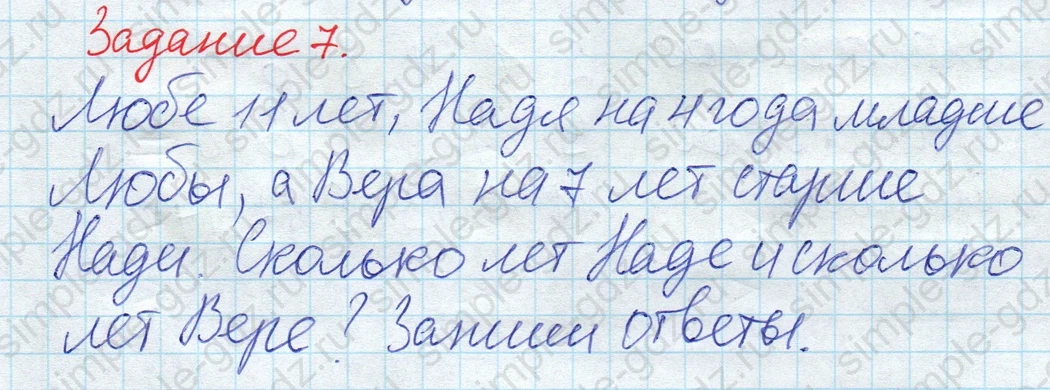 Задание 7.
Любе 11 лет, Надя на 4 года младше
Любы, а Вера на 7 лет старше
Нади. Сколько лет Наде и сколько
лет Вере? Запиши ответы.